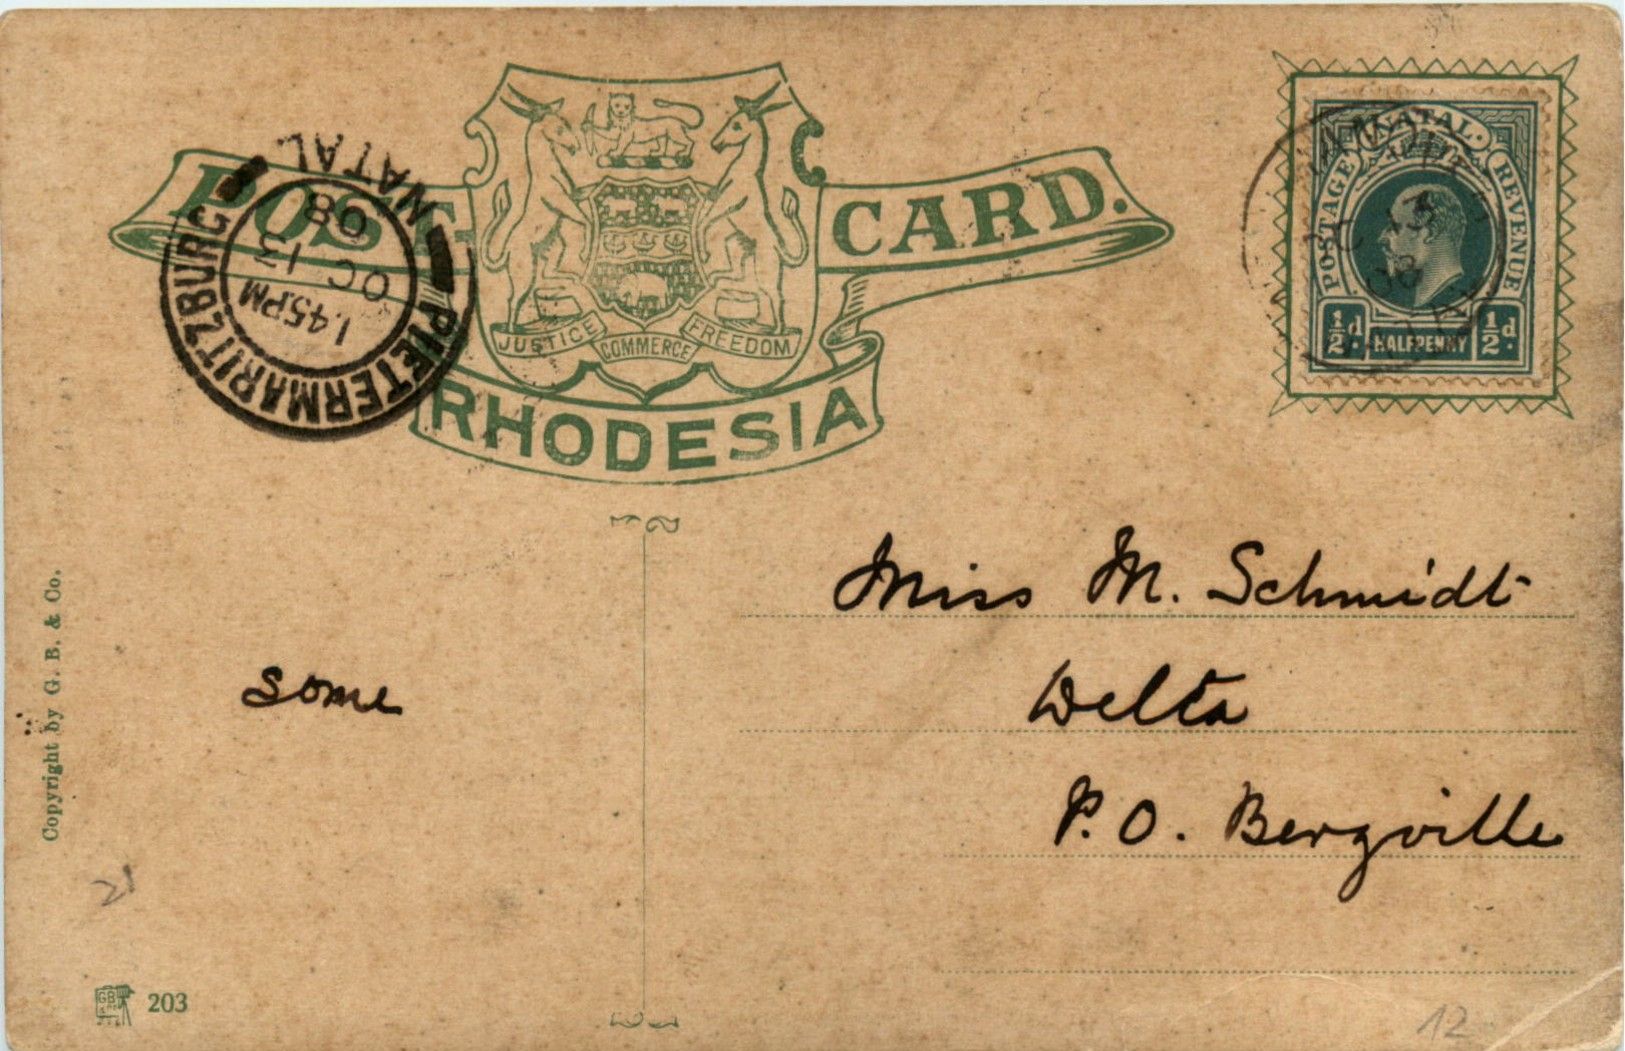 POST CARD.
JUSTICE COMMERCE FREEDOM
RHODESIA
PIETERMARITZBURG
1.45PM
OC 13
08
NATAL
NATAL.
POSTAGE REVENUE
½d HALFPENNY ½d.
13
08
Miss M. Schmidt
Delta
P.O. Bergville
some
Copyright by G. B. & Co.
21
203
12